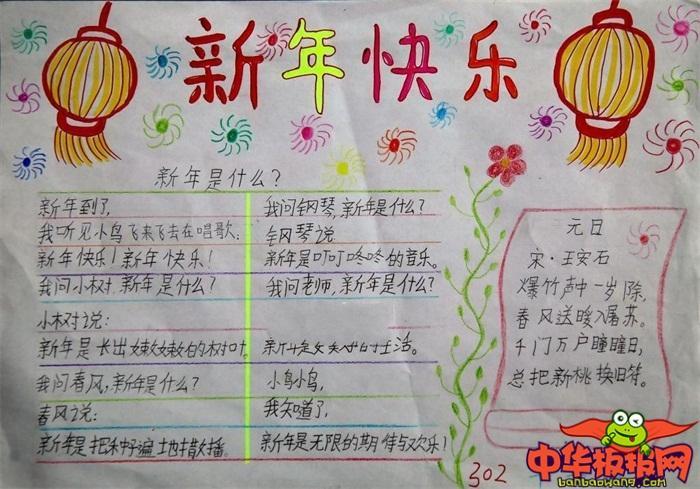 新年快乐
新年是什么?
新年到了,
我听见小鸟飞来飞去在唱歌:
新年快乐!新年快乐!
我问小树,新年是什么?
小树说:
新年是长出嫩嫩的树叶.
我问春风,新年是什么?
春风说:
新年是把种子遍地播.
我问钢琴,新年是什么?
钢琴说
新年是叮叮咚咚的音乐。
我问老师,新年是什么?
新年是 的生活。
小鸟小鸟,
我知道了,
新年是无限的期待与欢乐!
元日
宋·王安石
爆竹声中一岁除,
春风送暖入屠苏。
千门万户曈曈日,
总把新桃换旧符。
302
中华板报网
banbaowang.com